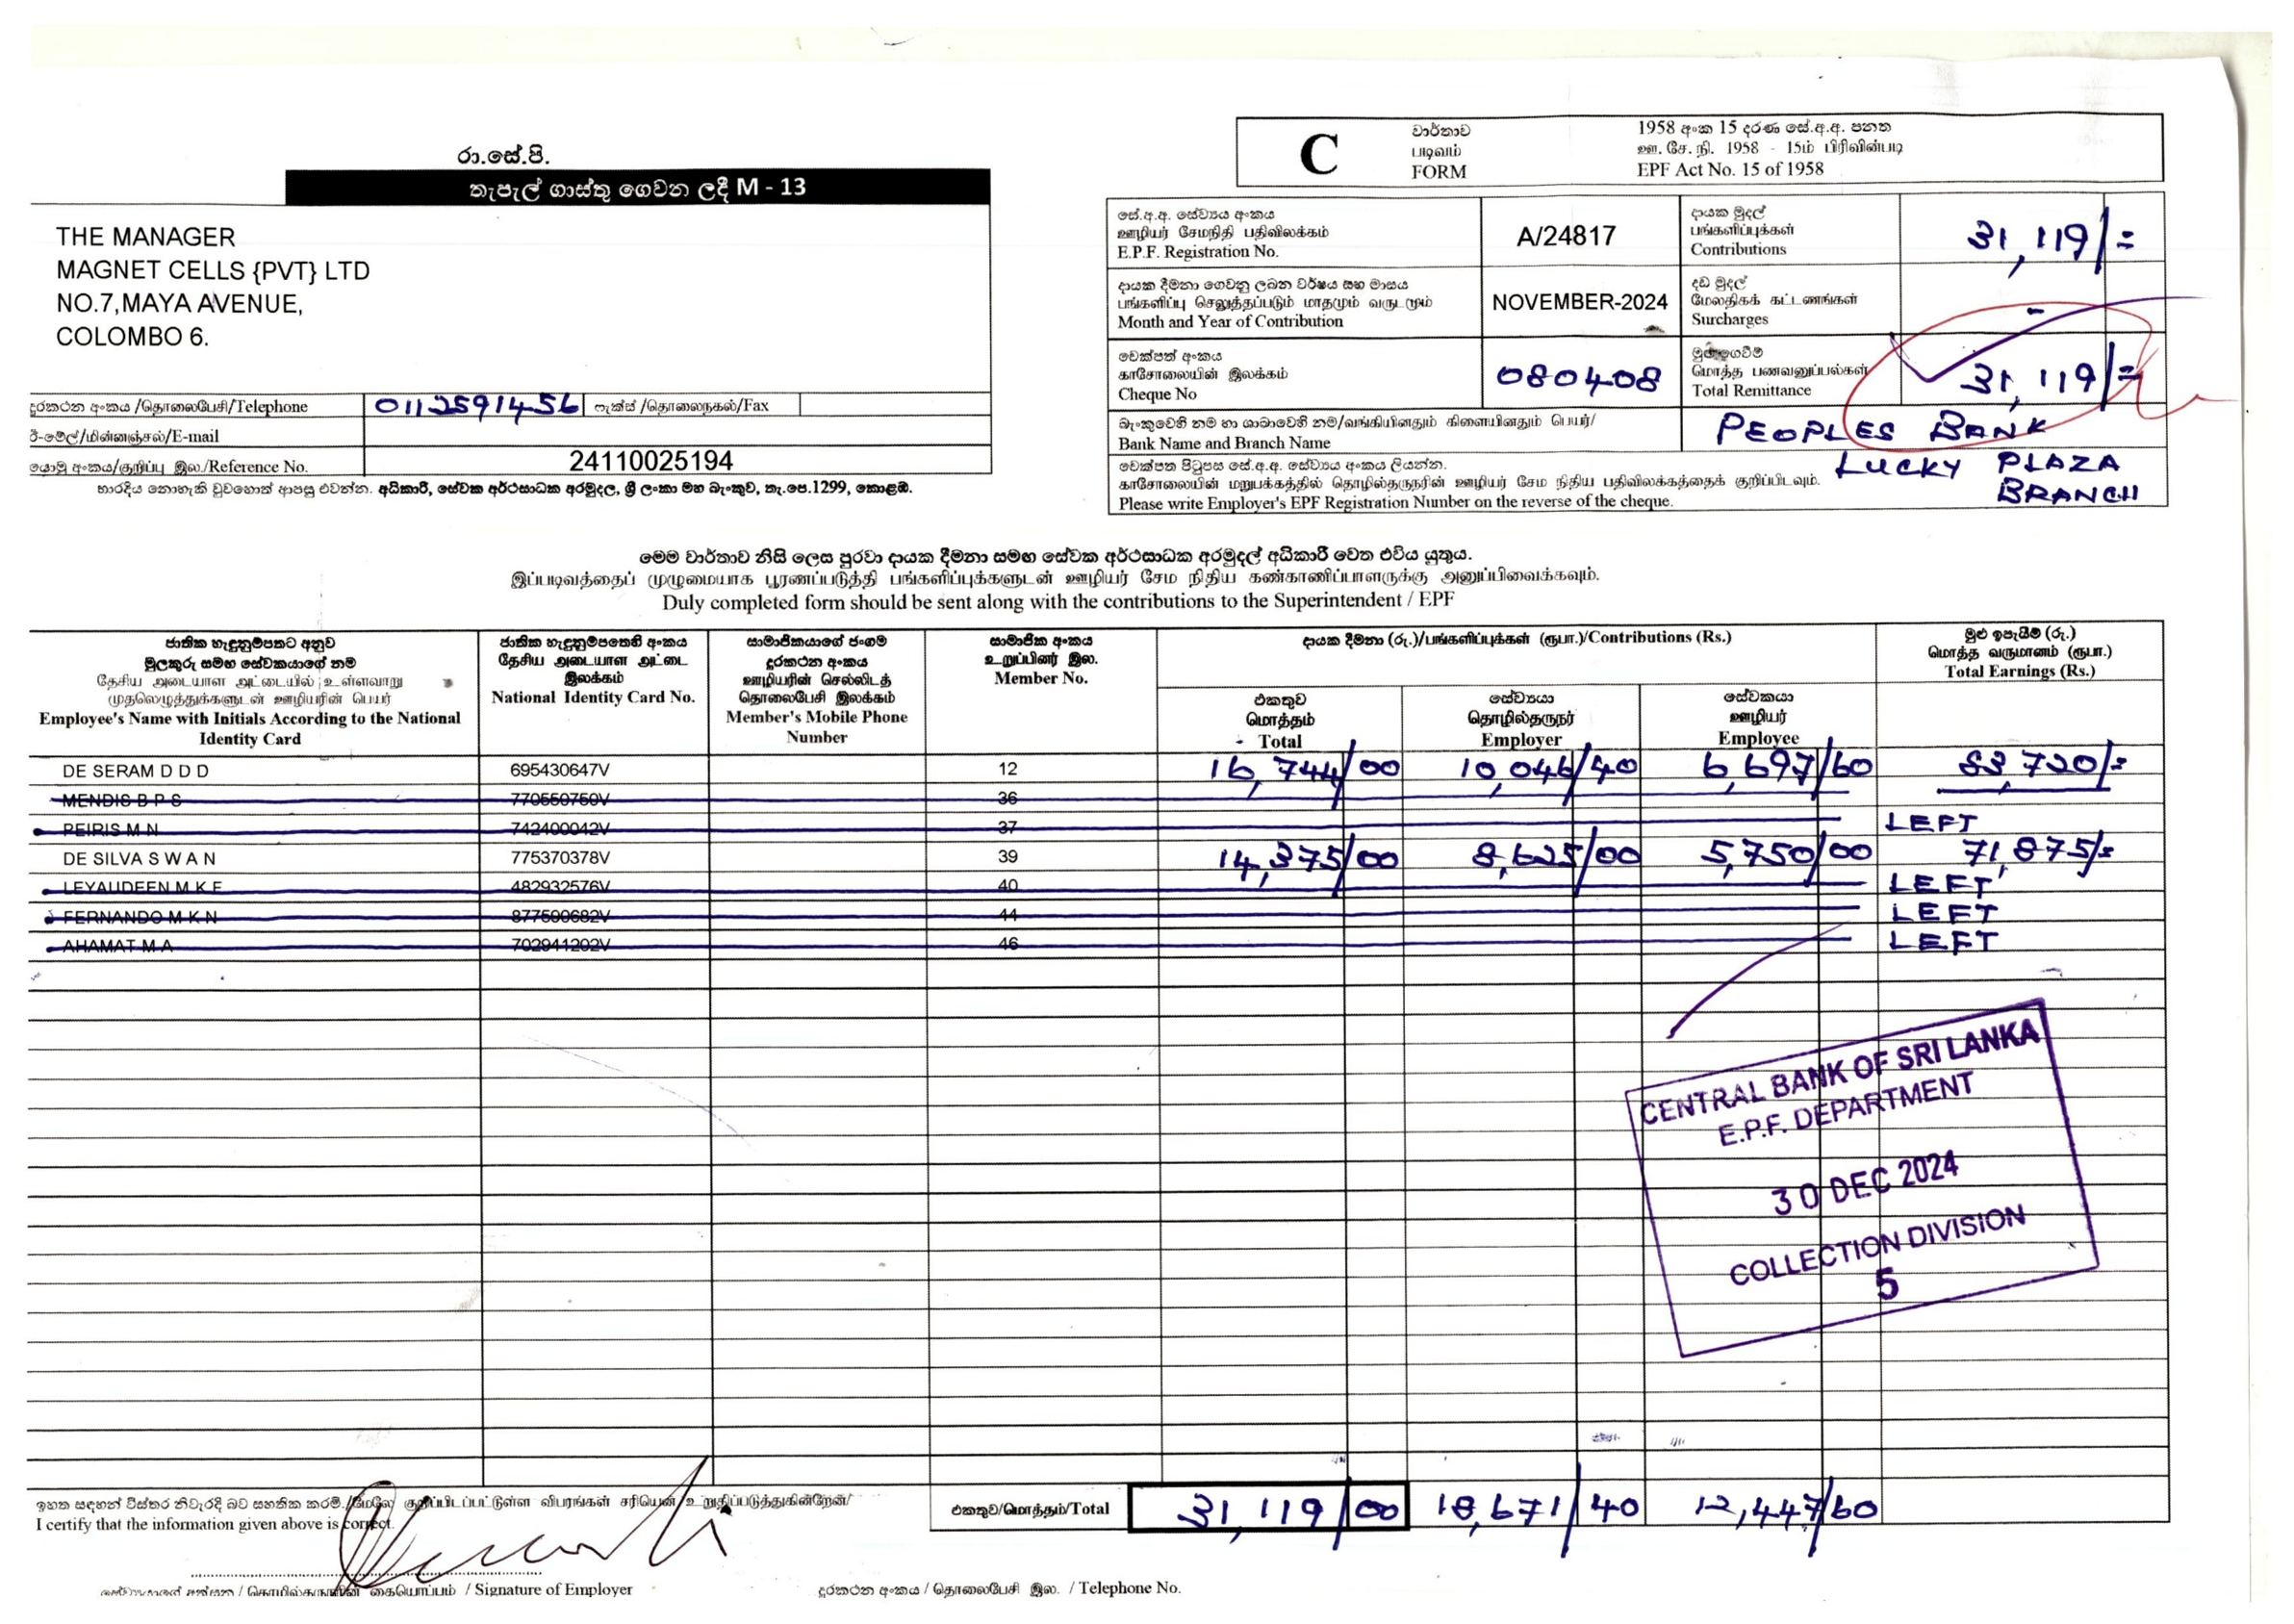 රා.සේ.පි.
තැපැල් ගාස්තු ගෙවන ලදී M - 13
THE MANAGER
MAGNET CELLS {PVT} LTD
NO.7,MAYA AVENUE,
COLOMBO 6.
දුරකථන අංකය /தொலைபேசி/Telephone 0112591456 ෆැක්ස් /தொலைநகல்/Fax
ඊ-මේල්/மின்னஞ்சல்/E-mail
යොමු අංකය/குறிப்பு இல./Reference No. 24110025194
භාරදිය නොහැකි වුවහොත් ආපසු එවන්න. අධිකාරී, සේවක අර්ථසාධක අරමුදල, ශ්‍රී ලංකා මහ බැංකුව, තැ.පෙ.1299, කොළඹ.
C
වාර්තාව
படிவம்
FORM
1958 අංක 15 දරණ සේ.අ.අ. පනත
ஊ. சே. நி. 1958 - 15ம் பிரிவின்படி
EPF Act No. 15 of 1958
සේ.අ.අ. සේව්‍යය අංකය
ஊழியர் சேமநிதி பதிவிலக்கம்
E.P.F. Registration No.
A/24817
දායක මුදල්
பங்களிப்புக்கள்
Contributions
31,119/=
දායක දීමනා ගෙවනු ලබන වර්ෂය සහ මාසය
பங்களிப்பு செலுத்தப்படும் மாதமும் வருடமும்
Month and Year of Contribution
NOVEMBER-2024
දඩ මුදල්
மேலதிகக் கட்டணங்கள்
Surcharges
-
චෙක්පත් අංකය
காசோலையின் இலக்கம்
Cheque No
080408
මුළු ගෙවීම්
மொத்த பணவனுப்பல்கள்
Total Remittance
31,119/=
බැංකුවෙහි නම හා ශාඛාවෙහි නම/வங்கியினதும் கிளையினதும் பெயர்/
Bank Name and Branch Name
PEOPLES BANK
LUCKY PLAZA
BRANCH
චෙක්පත පිටුපස සේ.අ.අ. සේව්‍යය අංකය ලියන්න.
காசோலையின் மறுபக்கத்தில் தொழில்தருநரின் ஊழியர் சேம நிதிய பதிவிலக்கத்தைக் குறிப்பிடவும்.
Please write Employer's EPF Registration Number on the reverse of the cheque.
මෙම වාර්තාව නිසි ලෙස පුරවා දායක දීමනා සමඟ සේවක අර්ථසාධක අරමුදල් අධිකාරී වෙත එවිය යුතුය.
இப்படிவத்தைப் முழுமையாக பூரணப்படுத்தி பங்களிப்புக்களுடன் ஊழியர் சேம நிதிய கண்காணிப்பாளருக்கு அனுப்பிவைக்கவும்.
Duly completed form should be sent along with the contributions to the Superintendent / EPF
ජාතික හැඳුනුම්පතට අනුව
මුලකුරු සමඟ සේවකයාගේ නම
தேசிய அடையாள அட்டையில் உள்ளவாறு
முதலெழுத்துக்களுடன் ஊழியரின் பெயர்
Employee's Name with Initials According to the National
Identity Card
ජාතික හැඳුනුම්පතෙහි අංකය
தேசிய அடையாள அட்டை
இலக்கம்
National Identity Card No.
සාමාජිකයාගේ ජංගම
දුරකථන අංකය
ஊழியரின் செல்லிடத்
தொலைபேசி இலக்கம்
Member's Mobile Phone
Number
සාමාජික අංකය
உறுப்பினர் இல.
Member No.
දායක දීමනා (රු.)/பங்களிப்புக்கள் (ரூபா.)/Contributions (Rs.)
එකතුව
மொத்தம்
Total
සේව්‍යයා
தொழில்தருநர்
Employer
සේවකයා
ஊழியர்
Employee
මුළු ඉපැයීම් (රු.)
மொத்த வருமானம் (ரூபா.)
Total Earnings (Rs.)
DE SERAM D D D 695430647V 12 16,744/00 10,046/40 6,697/60 83,720/=
MENDIS B P S 770550750V 36
PEIRIS M N 742400042V 37 LEFT
DE SILVA S W A N 775370378V 39 14,375/00 8,625/00 5,750/00 71,875/=
LEYAUDEEN M K F 482932576V 40 LEFT
FERNANDO M K N 877500682V 44 LEFT
AHAMAT M A 702941202V 46 LEFT
CENTRAL BANK OF SRI LANKA
E.P.F. DEPARTMENT
30 DEC 2024
COLLECTION DIVISION
5
ඉහත සඳහන් විස්තර නිවැරදි බව සහතික කරමි./மேலே குறிப்பிடப்பட்டுள்ள விபரங்கள் சரியென உறுதிப்படுத்துகின்றேன்/
I certify that the information given above is correct.
එකතුව/மொத்தம்/Total 31,119/00 18,671/40 12,447/60
/ Signature of Employer
දුරකථන අංකය / தொலைபேசி இல. / Telephone No.